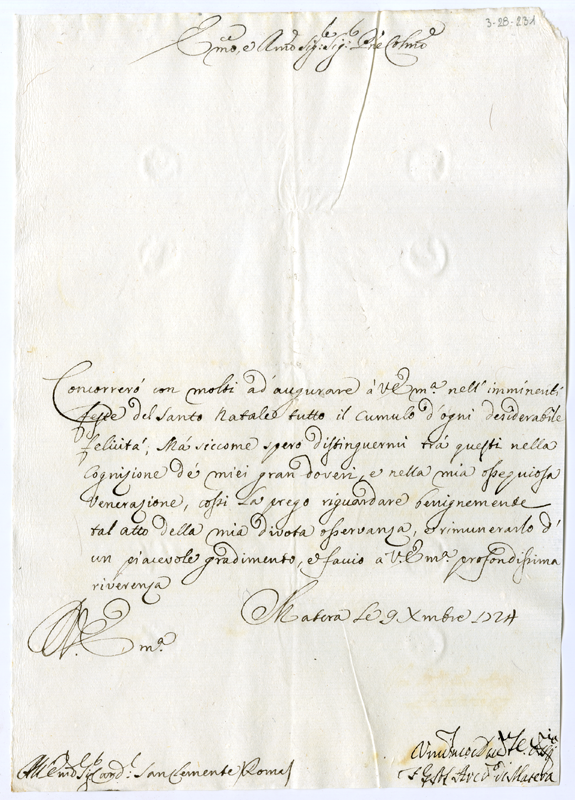 3-28-231
Emo, e Rmo Sigre Sigr Pne Colmo
Concorrerò con molti ad'augurare à V.Emza nell'imminenti
feste del Santo Natale tutto il cumulo d'ogni desiderabile
felicità; Mà siccome spero distinguermi trà questi nella
Cognisione dè miei gran doveri, e nella mia ossequiosa
Venerazione, cossi La prego riguardare benignemente
tal atto della mia divota osservanza, e rimunerarlo d'
un piacevole gradimento, e facio a V.Emza profondissima
riverenza
Matera Le 9 Xmbre 1724
V.Emza
All'Emo Sigr Card: San Clemente Roma
di Matera